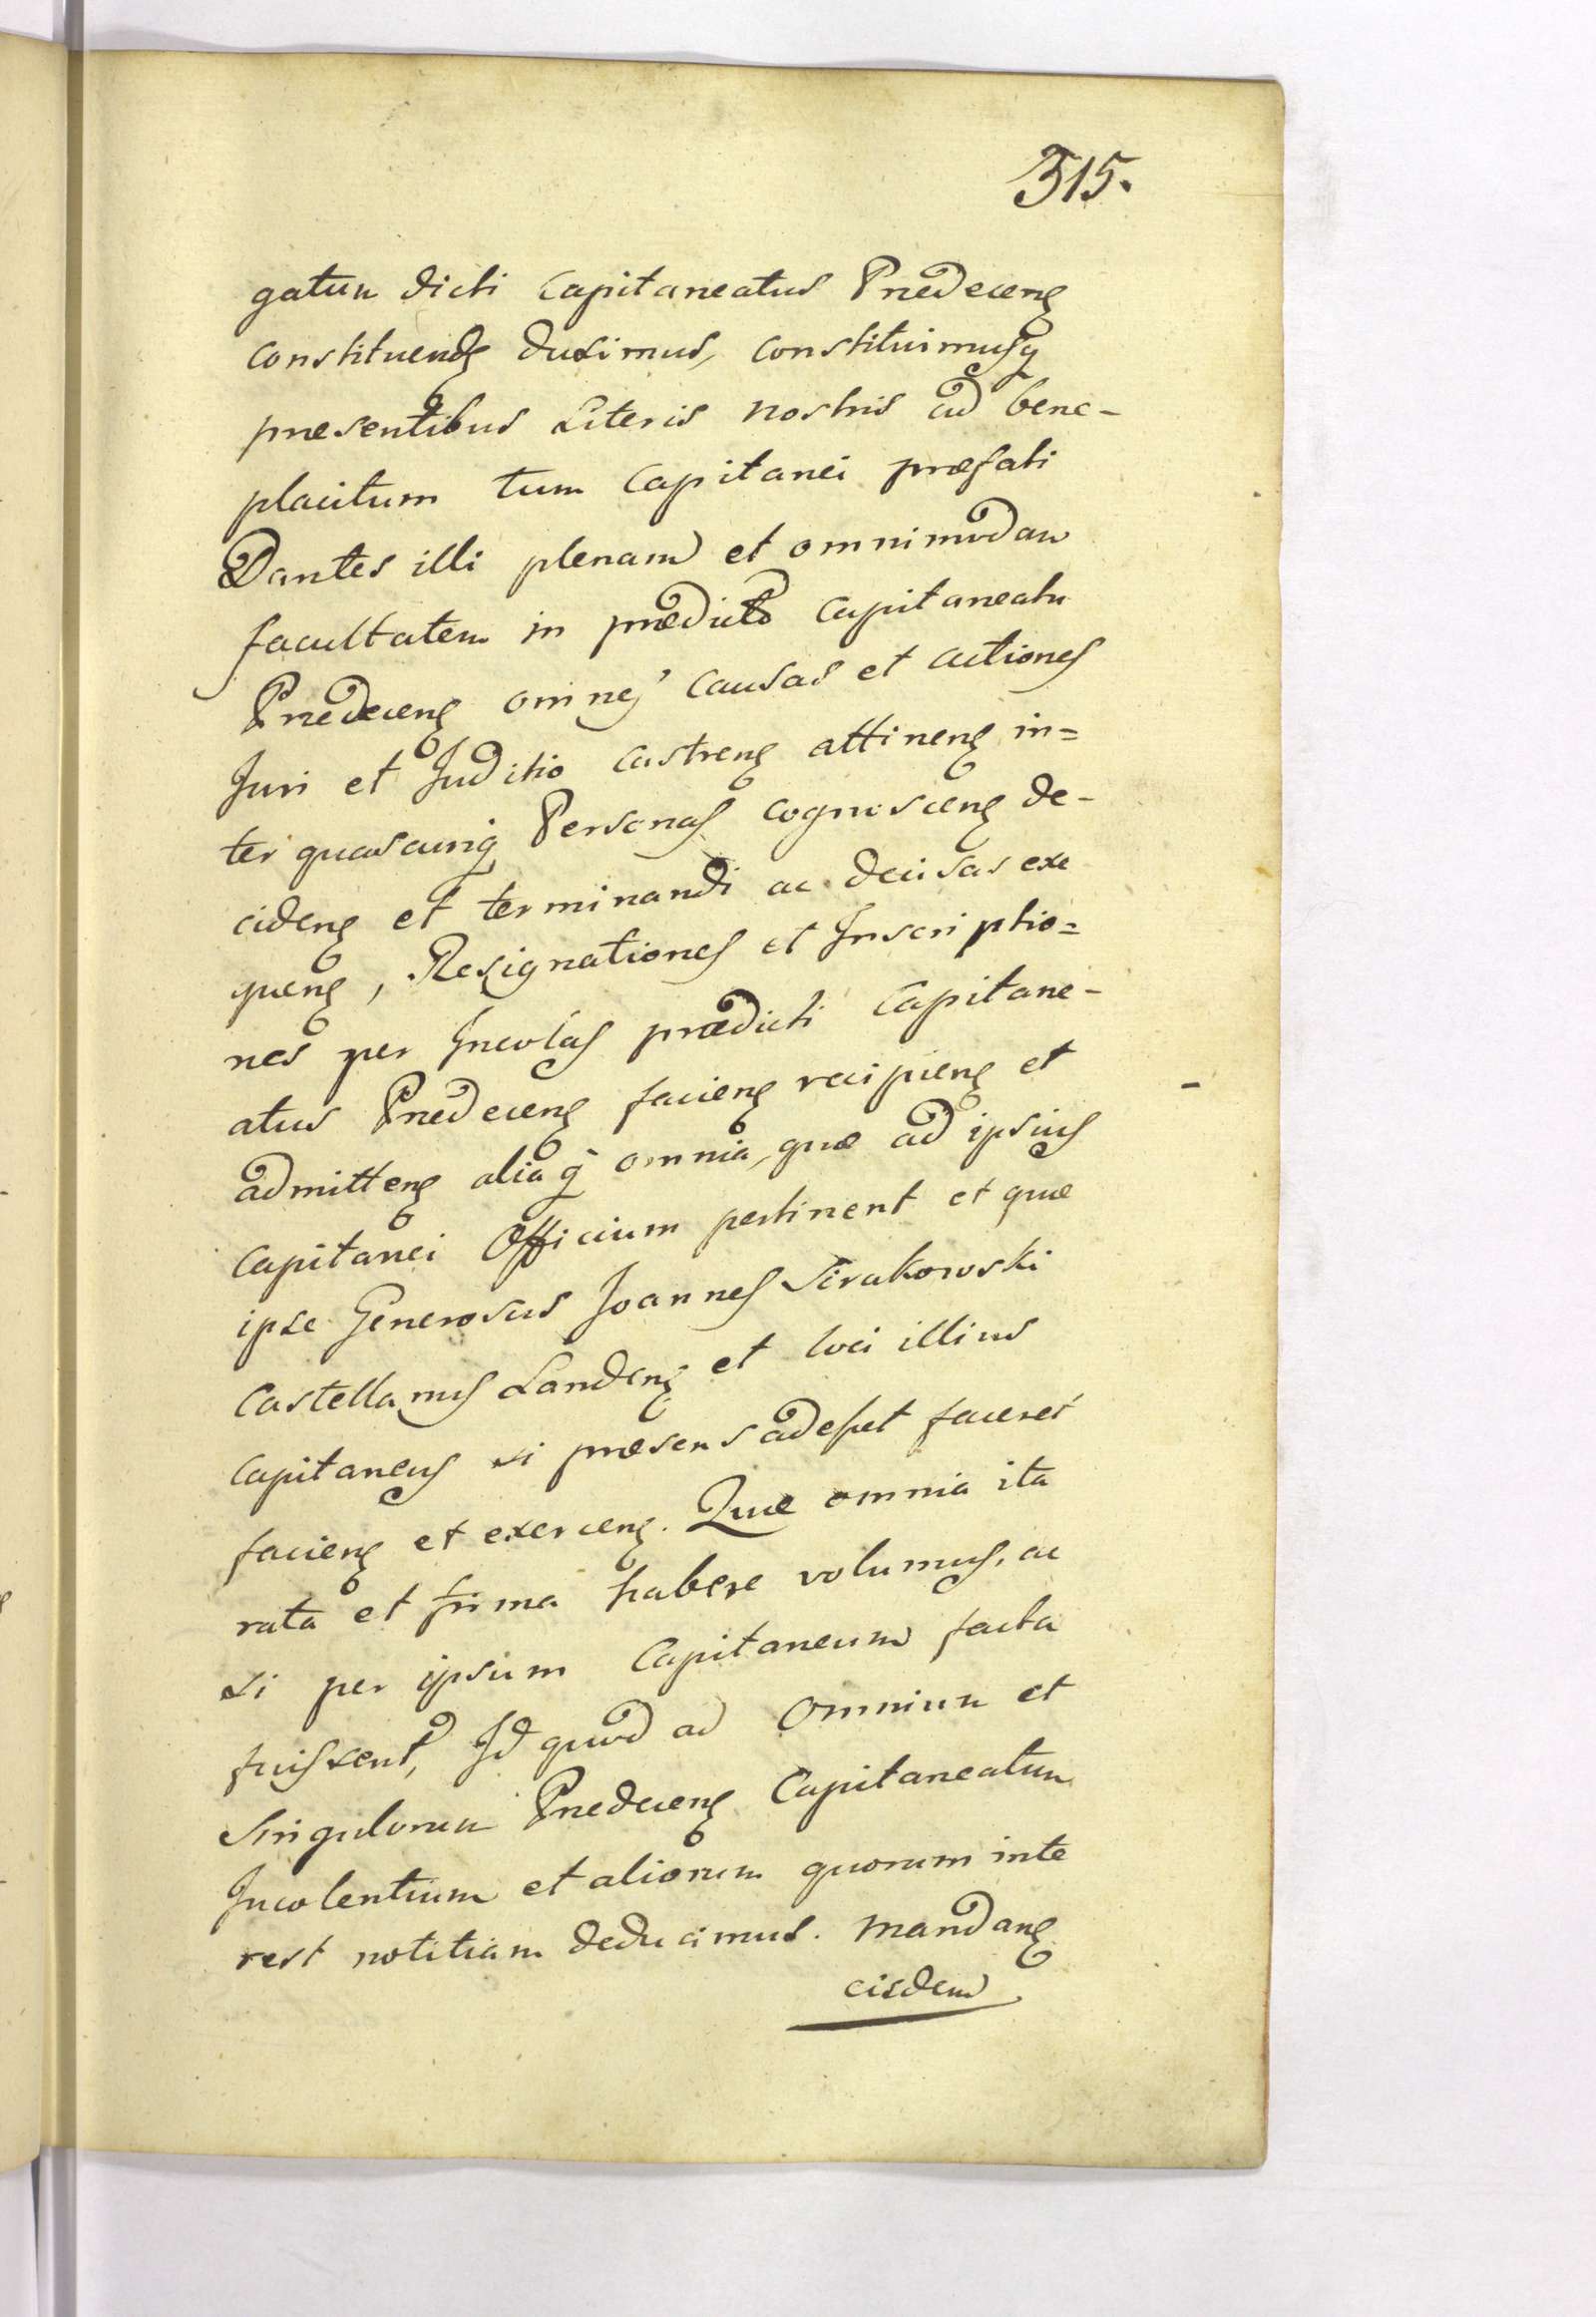 315.
gatum dicti Capitaneatus Prædecenꝭ
constituendꝭ duximus, constituimusq
præsentibus Literis nostris ad bene-
placitum tum Capitanei præfati
Dantes illi plenam et omnimodam
facultatem in prædicto Capitaneatu
Prædecenꝭ omnes causas et actiones
Juri et Juditio castrenꝭ attinenꝭ in=
ter quascunq Personas cognoscenꝭ de-
cidenꝭ et terminandi ac decisas exe
quenꝭ, Resignationes et Inscriptio=
nes per Incolas prædicti Capitane-
atus Prædecenꝭ facienꝭ recipienꝭ et
admittenꝭ aliaq omnia, quæ ad ipsius
Capitanei Officium pertinent et quæ
ipse Generosus Joannes Sirakowski
Castellanus Landenꝭ et loci illius
Capitaneus si præsens adesset faceret
facienꝭ et exercenꝭ. Quæ omnia ita
rata et firma habere volumus, ac
si per ipsum Capitaneum facta
fuissent, Id quod ad Omnium et
Singulorum Prædecenꝭ Capitaneatum
Incolentium et aliorum quorum inte
rest notitiam deducimus. Mandanꝭ
eisdem